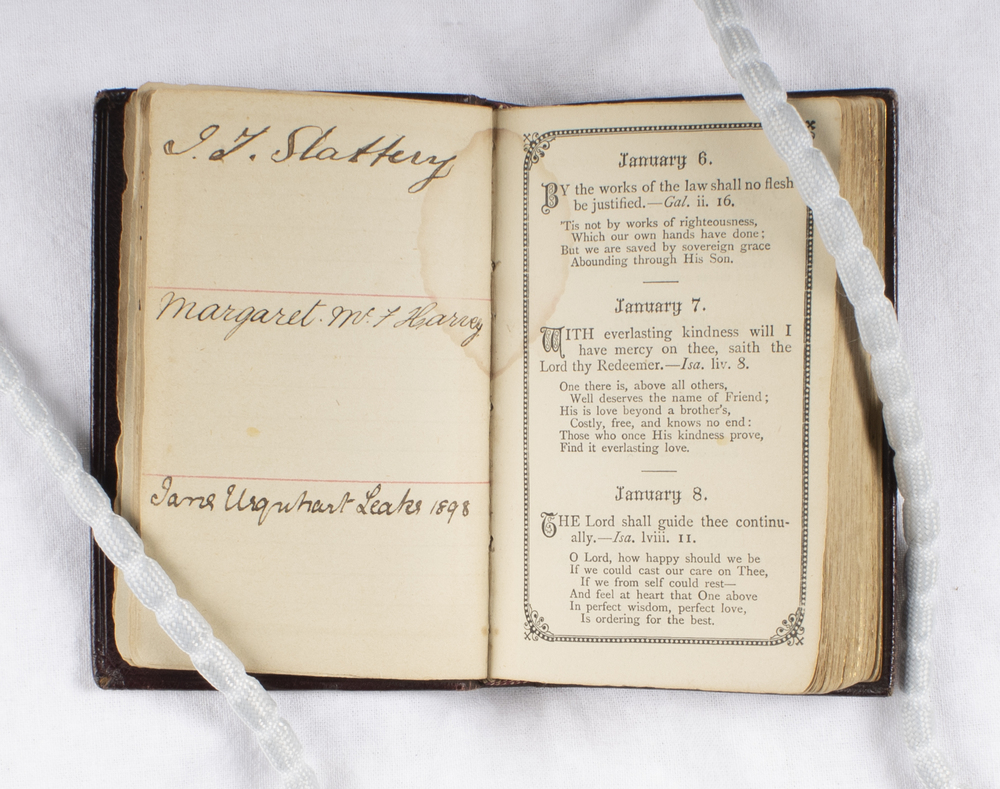 J. F. Slattery
Margaret. McF Harvey
Jane Urquhart Leake 1898
January 6.
BY the works of the law shall no flesh
be justified.—Gal. ii. 16.
'Tis not by works of righteousness,
Which our own hands have done;
But we are saved by sovereign grace
Abounding through His Son.
January 7.
WITH everlasting kindness will I
have mercy on thee, saith the
Lord thy Redeemer.—Isa. liv. 8.
One there is, above all others,
Well deserves the name of Friend;
His is love beyond a brother's,
Costly, free, and knows no end:
Those who once His kindness prove,
Find it everlasting love.
January 8.
THE Lord shall guide thee continu-
ally.—Isa. lviii. 11.
O Lord, how happy should we be
If we could cast our care on Thee,
If we from self could rest—
And feel at heart that One above
In perfect wisdom, perfect love,
Is ordering for the best.